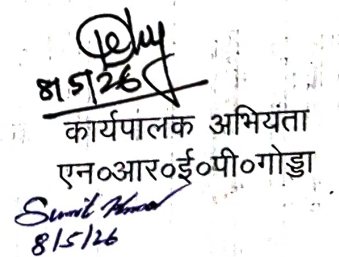 8/5/26
कार्यपालक अभियंता
एन०आर०ई०पी०गोड्डा
Sumit Kumar
8/5/26